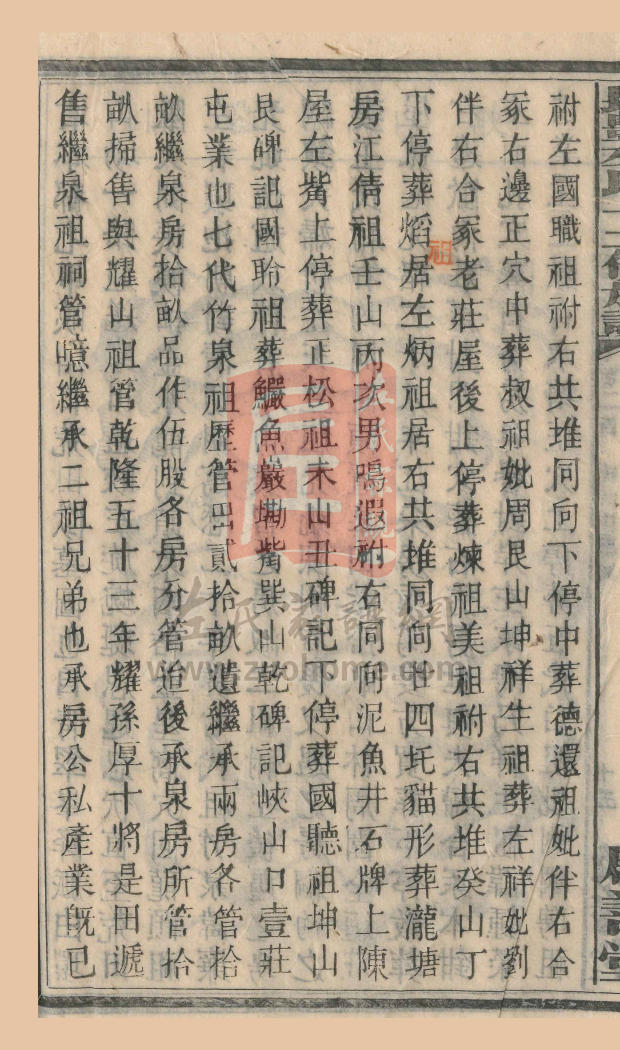 祔左國職祖祔右共堆同向下停中葬德還祖妣伴右合
冢右邊正穴中葬叔祖妣周艮山坤祥生祖葬左祥妣劉
伴右合冢老莊屋後上停葬煉祖美祖祔右共堆癸山丁
下停葬熖居左炳祖居右共堆同向廿四圫貓形葬瀧塘
祖
房江倩祖壬山丙次男鳴遐祔右同向泥魚井石牌上陳
屋左觜上停葬正松祖未山丑碑記下停葬國聽祖坤山
艮碑記國聆祖葬鱺魚巖坳觜巽山乾碑記峽山口壹莊
屯業也七代竹泉祖歷管田貳拾畝遺繼承兩房各管拾
畝繼泉房拾畝品作伍股各房分管迨後承泉房所管拾
畝掃售與耀山祖管乾隆五十三年耀孫厚十將是田遞
售繼泉祖祠管噫繼承二祖兄弟也承房公私產業旣已
左氏家譜網
www.zuohome.com